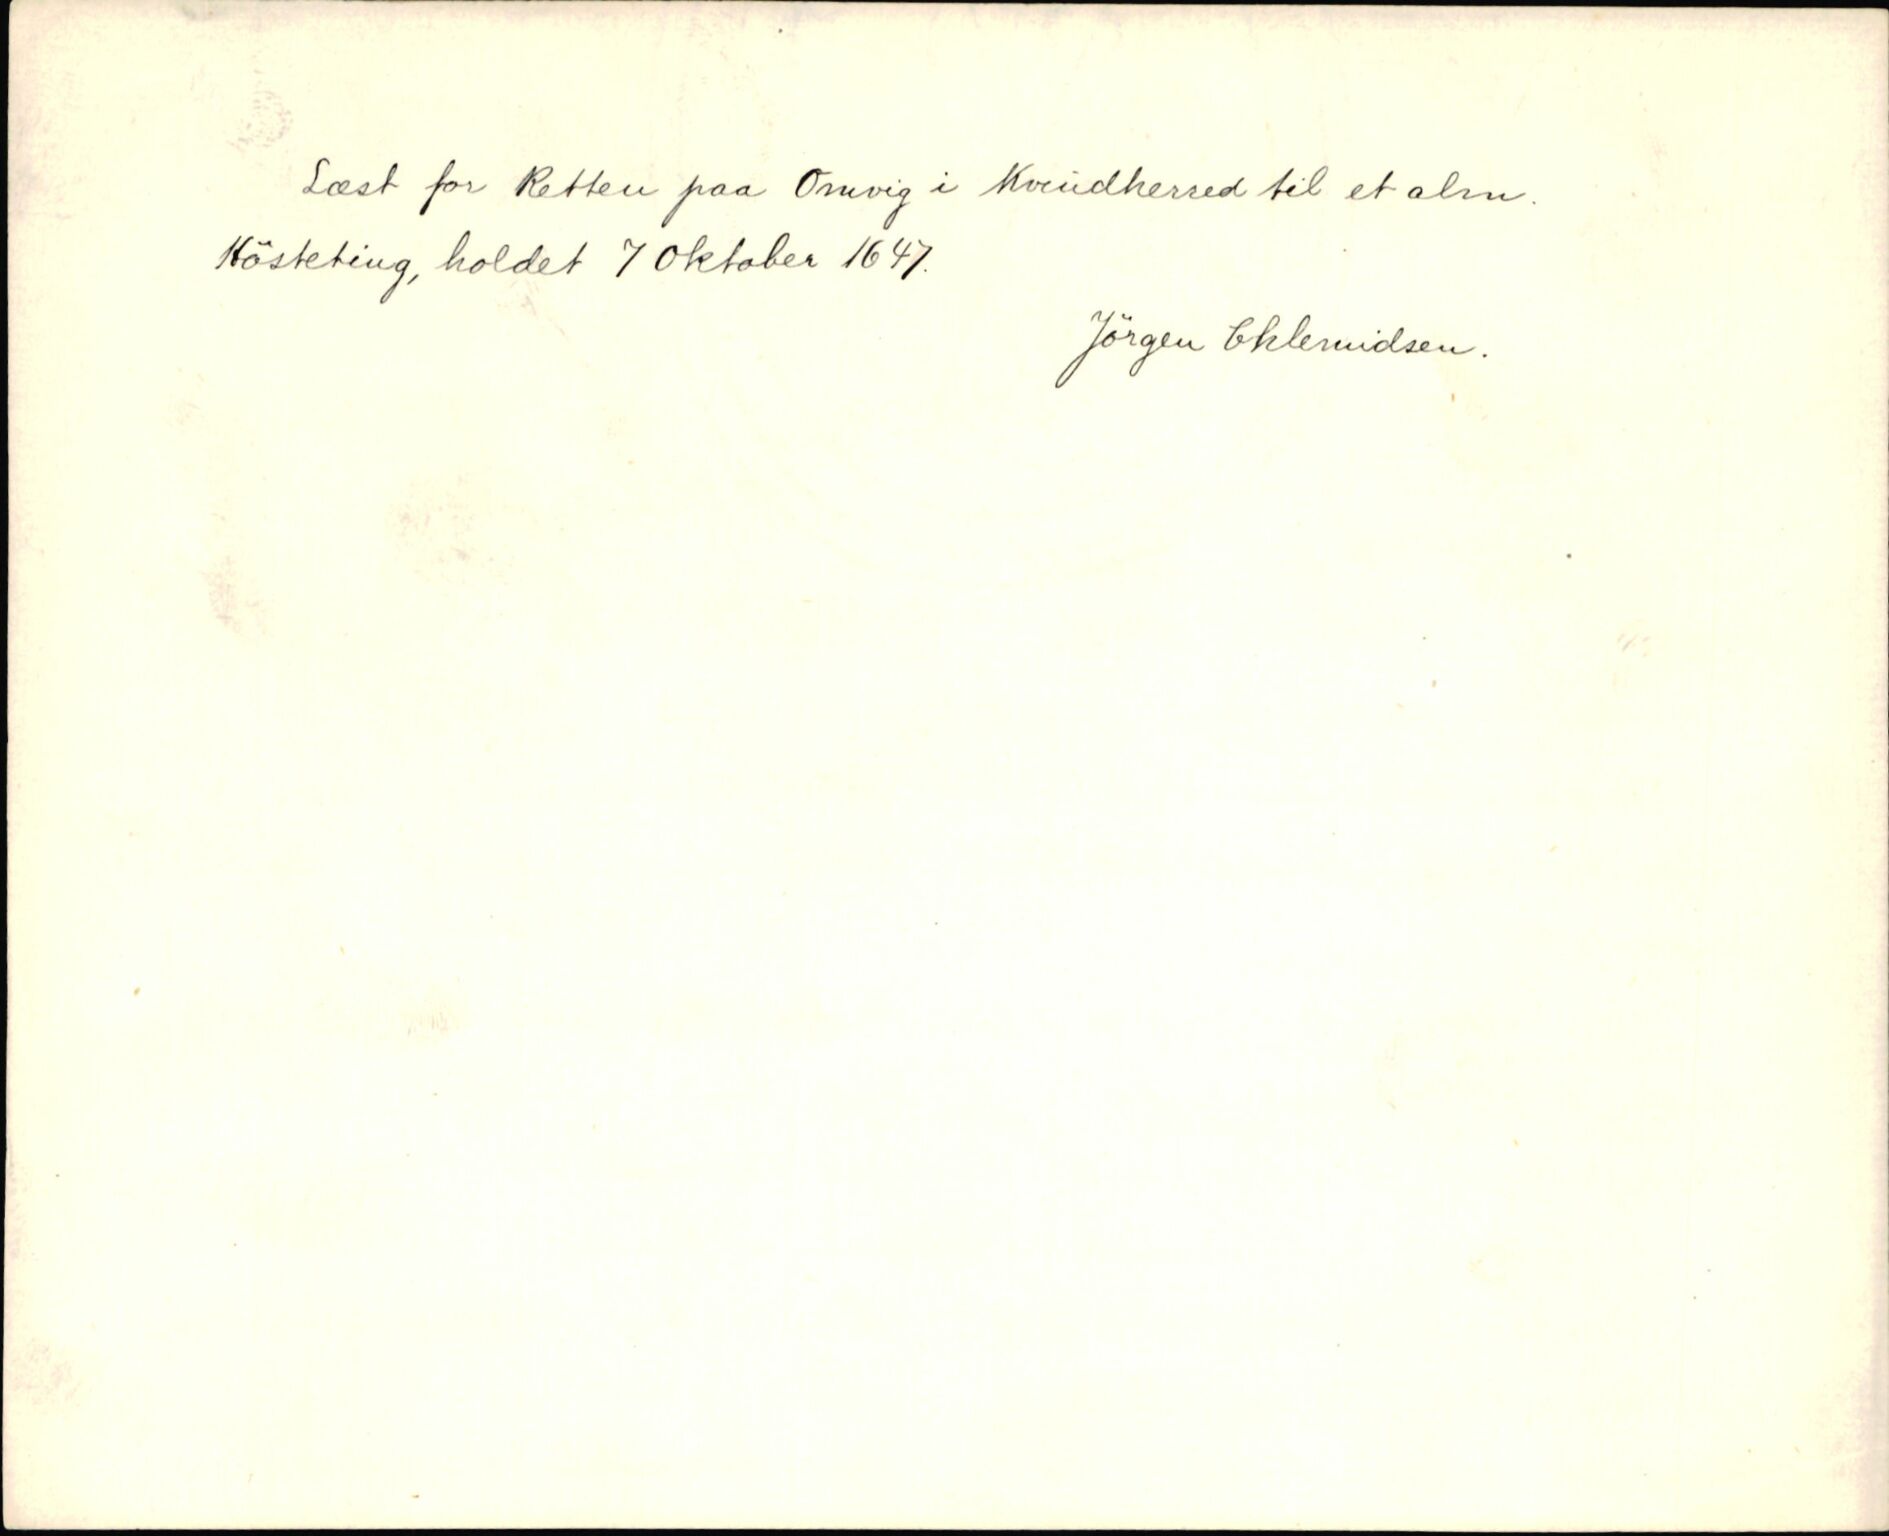 Læst for Retten paa Omvig i Kvindherred til et alm.
Hösteting, holdet 7 Oktober 1647.
Jörgen Chlemidsen.